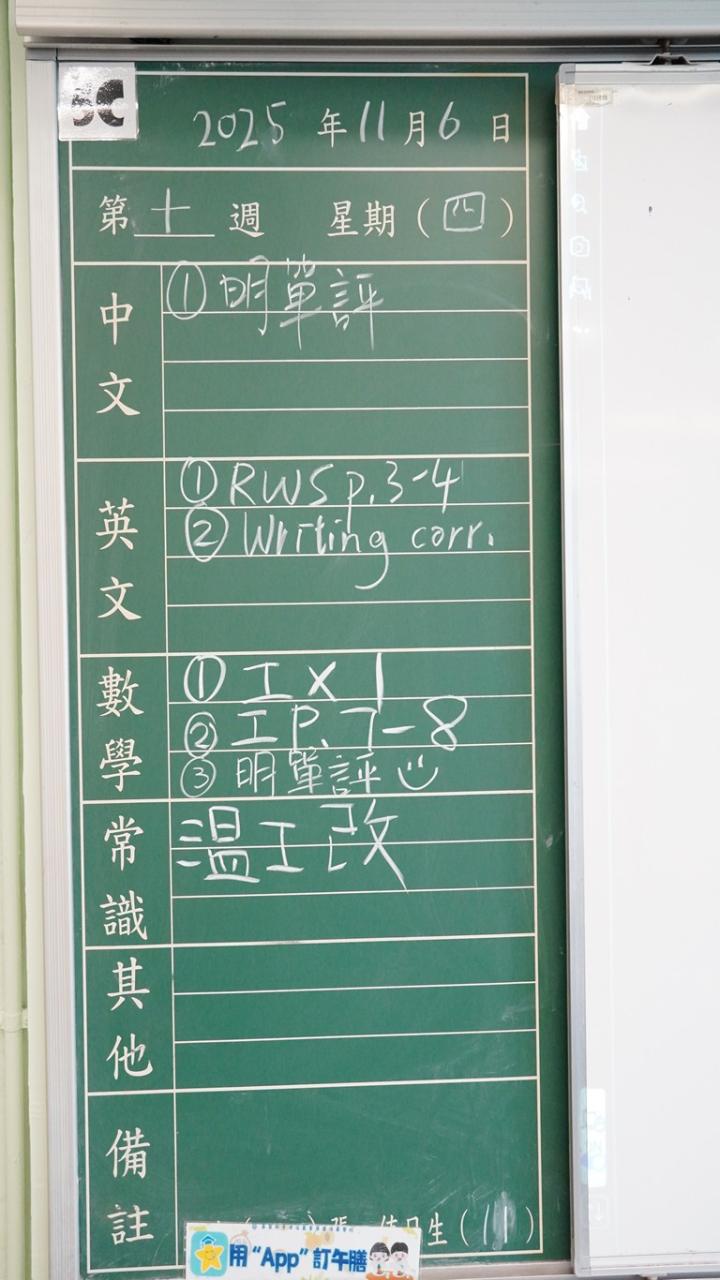 2025 年 11 月 6 日
第 十 週 星期 ( 四 )
中文
① 明單評
英文
① RWS p.3-4
② Writing corr.
數學
① 工 x 1
② 工 P. 7-8
③ 明單評
常識
溫工改
其他
備註
生 ( 11 )
用 “App” 訂午膳